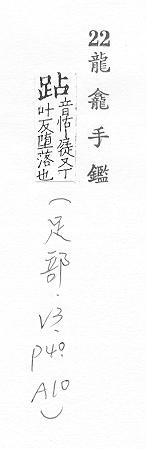 22 龍龕手鑑
跕 音怗徒又丁
叶反墮落也
(足部.V3.P40.A10)